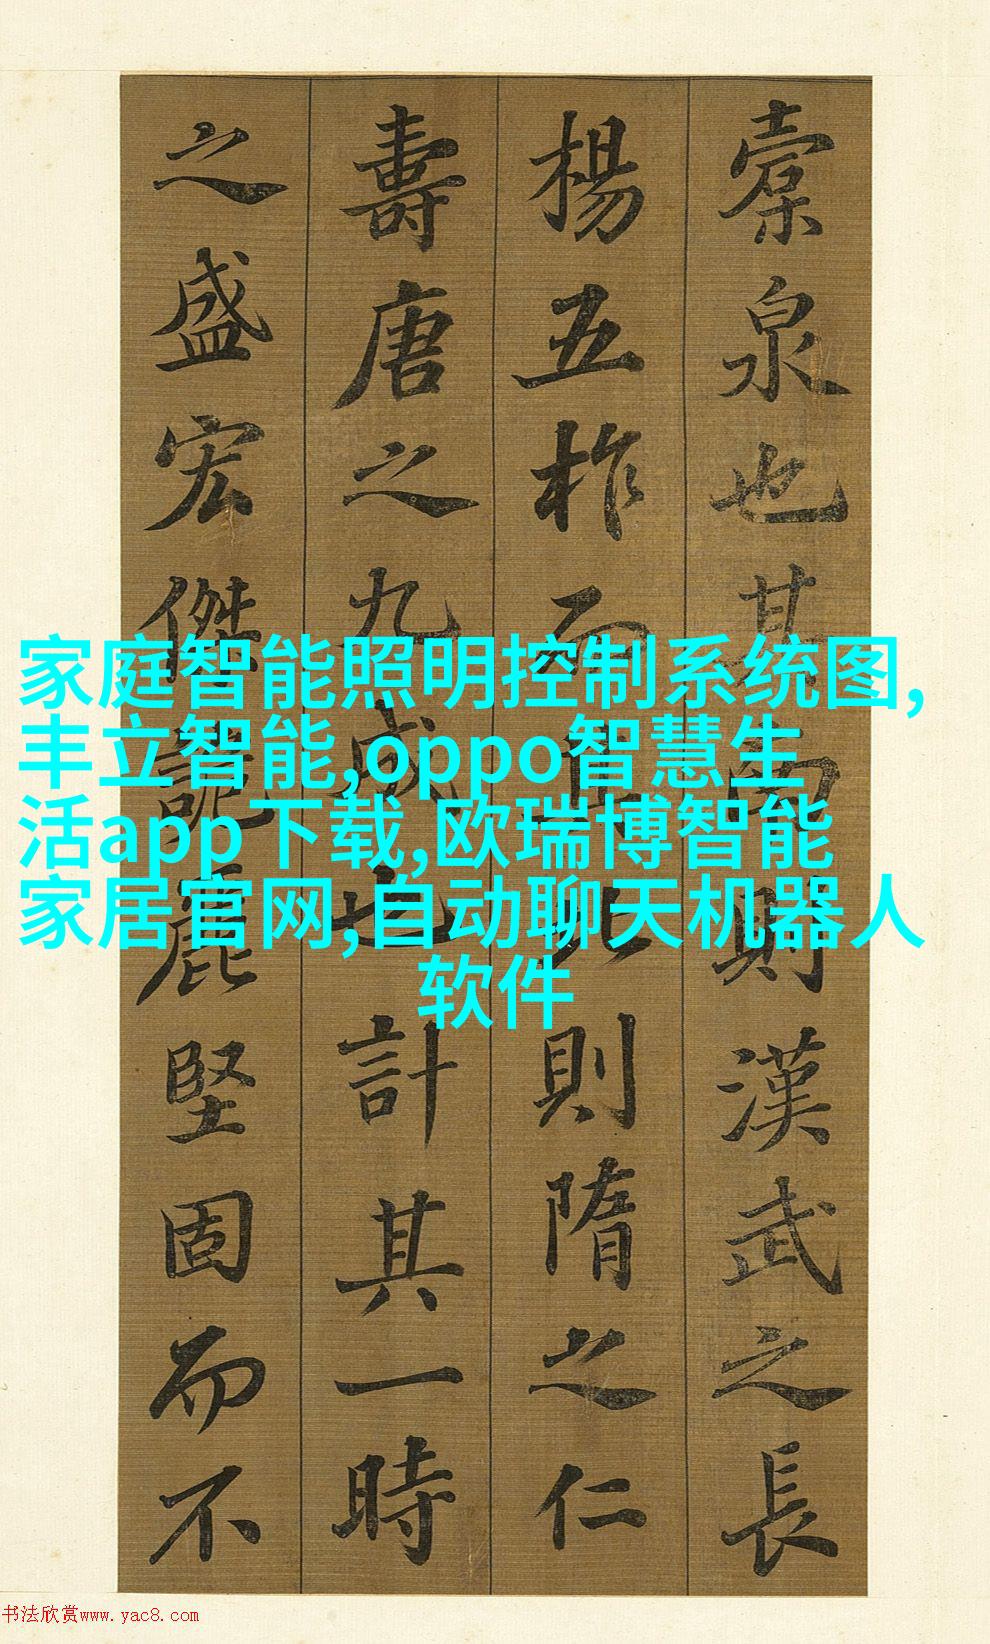 橐泉也其南則漢武之長
楊五柞而其北則隋之仁
壽唐之九成也計其一時
之盛宏傑詭麗堅固而不
家庭智能照明控制系统图,
丰立智能,oppo智慧生
活app下载,欧瑞博智能
家居官网,自动聊天机器人
软件
书法欣赏www.yac8.com